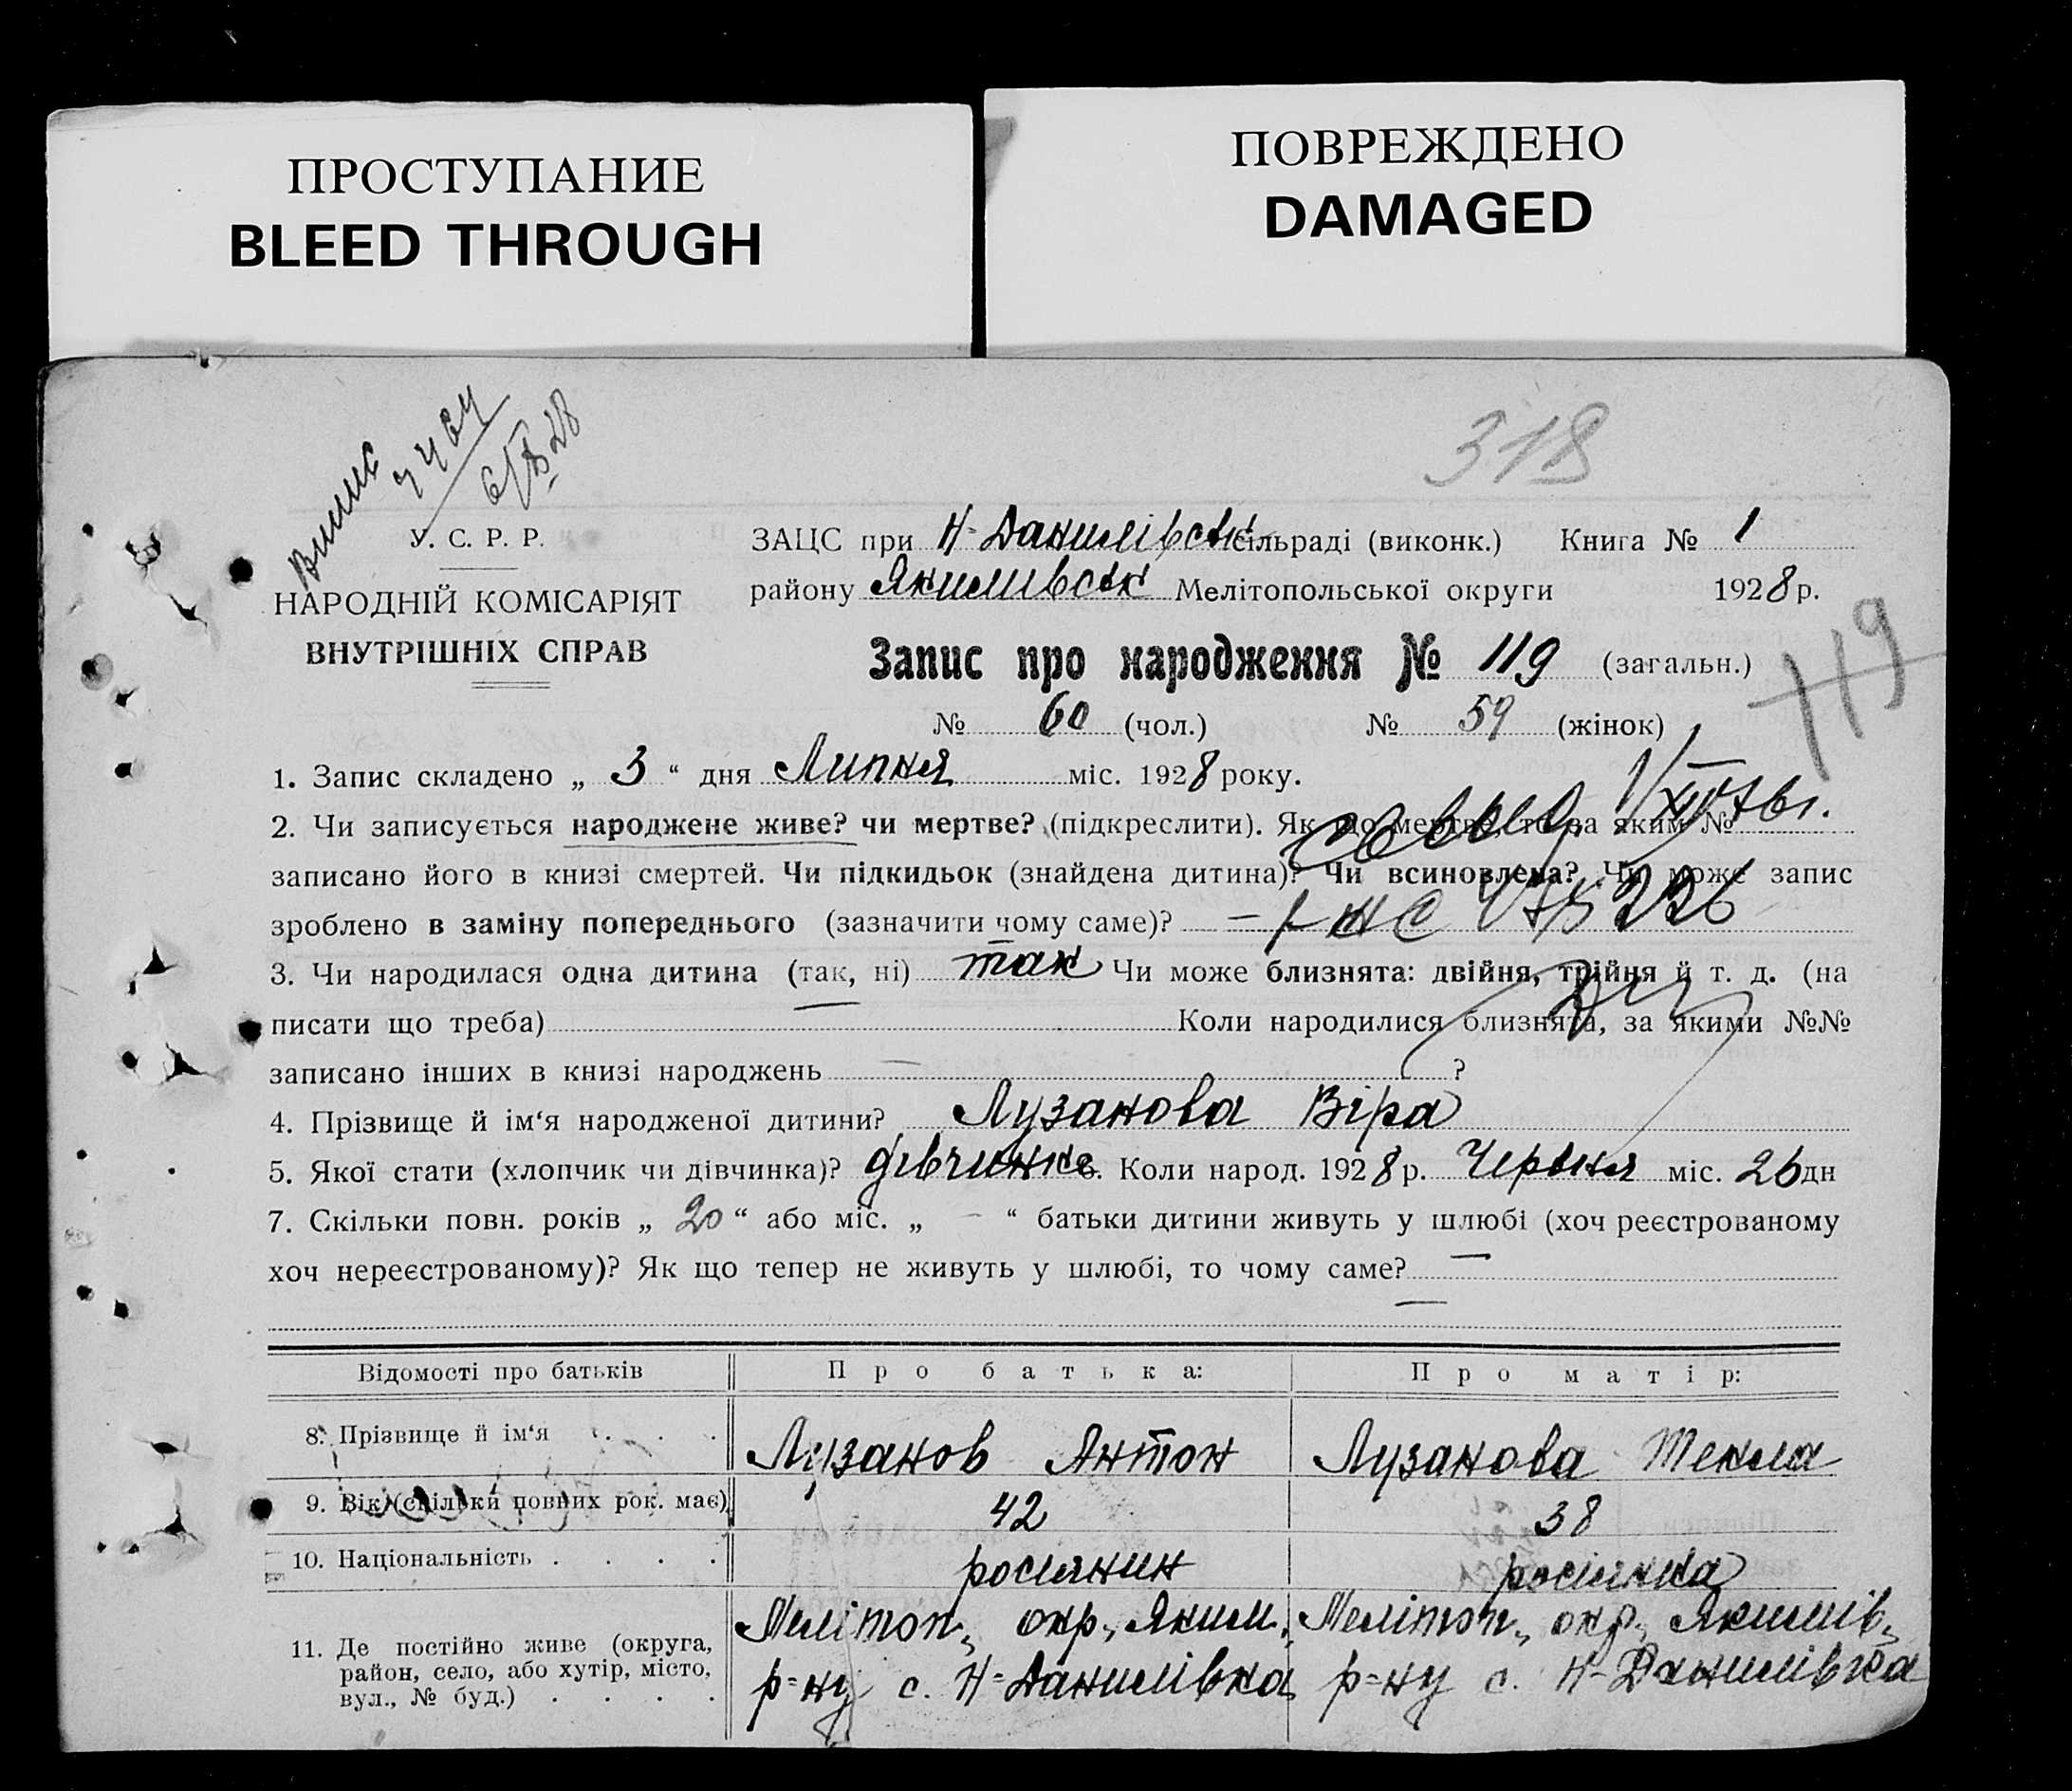 ПРОСТУПАНИЕ
BLEED THROUGH
ПОВРЕЖДЕНО
DAMAGED
318
Випис
У. С. Р. Р.
НАРОДНІЙ КОМІСАРІЯТ
ВНУТРІШНІХ СПРАВ
ЗАЦС при Н-Данилівськ сільраді (виконк.) Книга № 1
району Якимівськ Мелітопольської округи 1928 р.
Запис про народження № 119 (загальн.)
119
№ 60 (чол.) № 59 (жінок)
1. Запис складено „ 3 “ дня Липня міс. 1928 року.
2. Чи записується народжене живе? чи мертве? (підкреслити). Як що мертве, то за яким №
записано його в книзі смертей. Чи підкидьок (знайдена дитина)? Чи всиновлена? Чи може запис
зроблено в заміну попереднього (зазначити чому саме)? —
3. Чи народилася одна дитина (так, ні) так Чи може близнята: двійня, трійня й т. д. (на
писати що треба) Коли народилися близнята, за якими №№
записано інших в книзі народжень — ?
4. Прізвище й ім‘я народженої дитини? Лузанова Віра
5. Якої стати (хлопчик чи дівчинка)? дівчинка 6. Коли народ. 1928 р. Червня міс. 26 дн
7. Скільки повн. років „ 20 “ або міс. „ – “ батьки дитини живуть у шлюбі (хоч реєстрованому
хоч нереєстрованому)? Як що тепер не живуть у шлюбі, то чому саме? —
Відомості про батьків Про батька: Про матір:
8. Прізвище й ім‘я . . . Лузанов Антон Лузанова Текла
9. Вік (скільки повних рок. має) 42 38
10. Національність . . . . росиянин росіянка
11. Де постійно живе (округа, район, село, або хутір, місто, вул., № буд.) . . . .
Мелітоп., окр., Яким. р-ну с. Н-Данилівка
Мелітоп., окр., Якимів. р-ну с. Н-Данилівка